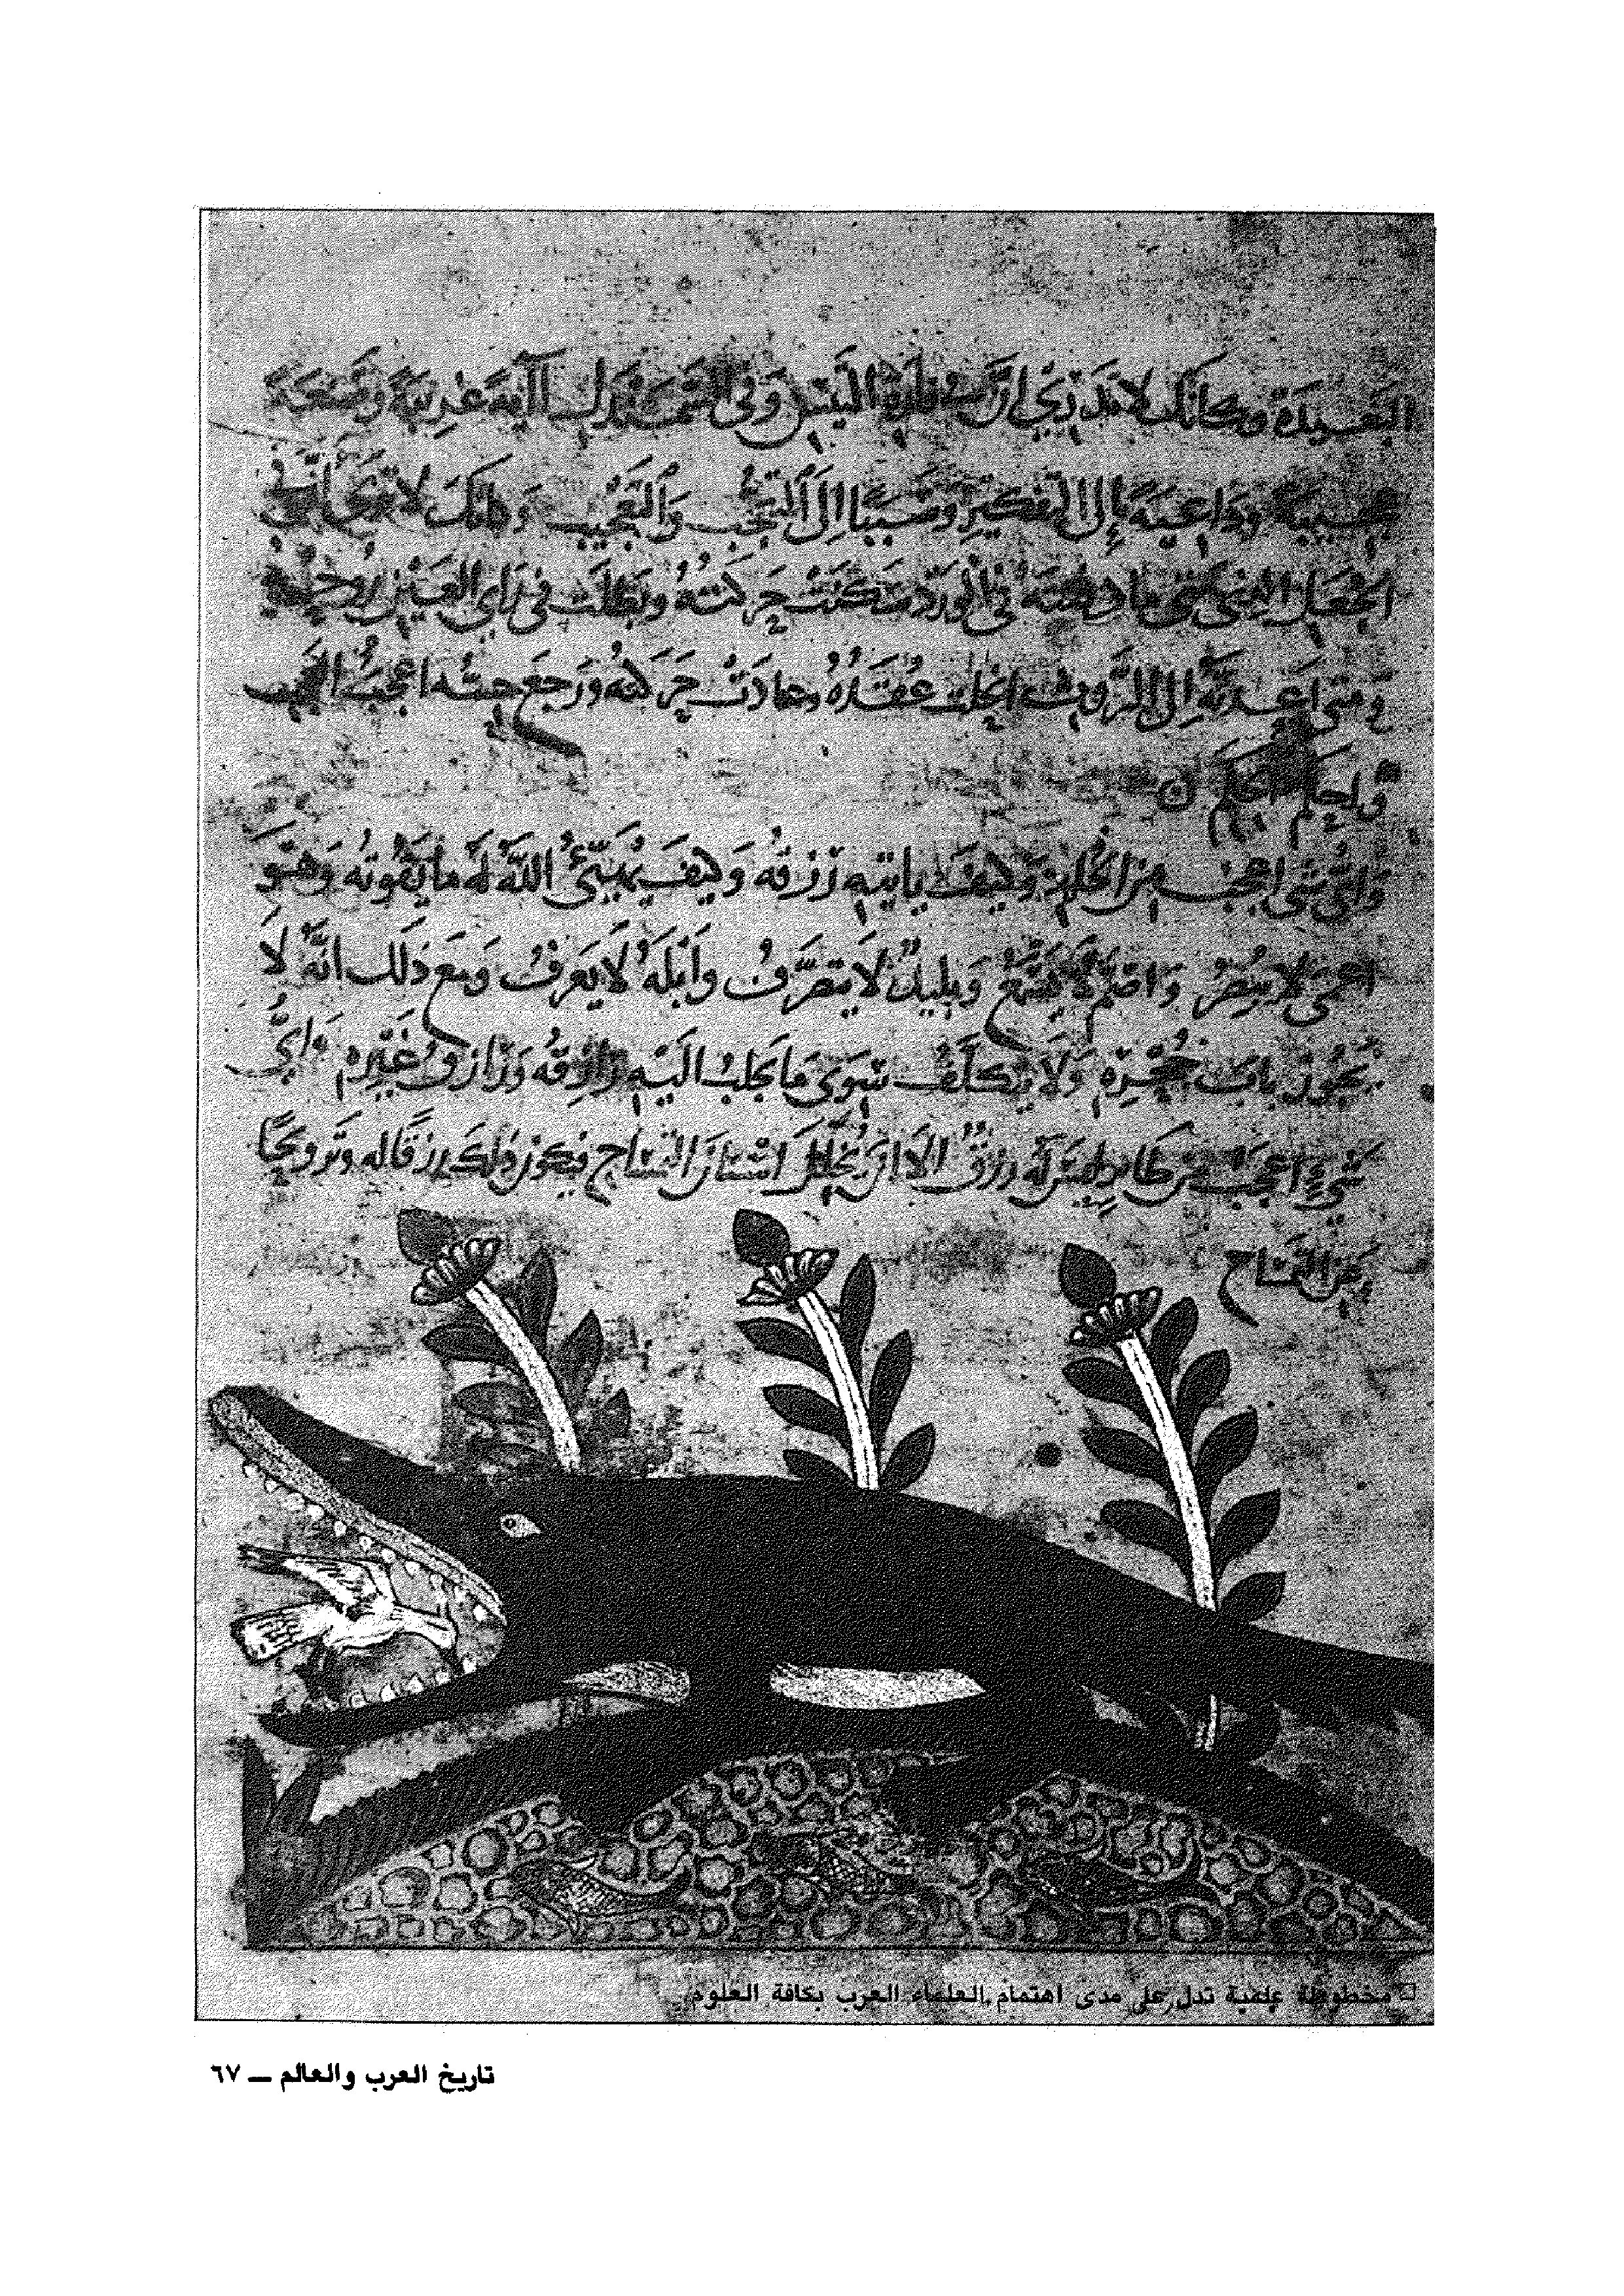 البعيدة وكأنك لا تدري أن في الببر وفي السمندل آية غريبة وصفة
عجيبة وداعية إلى التفكير وسببا إلى التعجب والتعجيب وكذلك لا
الجعل الذي متى ما دفنته في الورد سكنت حركته وبطلت في رأي العين روحه
ومتى أعدته إلى الروث انحلت عقدته وعادت حركته ورجع حسه أعجب العجب
وأحكم الحكم
وأي شيء أعجب من الخلد وكيف يأتيه رزقه وكيف يهيئ الله له ما يقوته وهو
أعمى لا يبصر وأصم لا يسمع وبليد لا يتصرف وأبله لا يعرف ومع ذلك انه لا
يجوز باب جحره ولا يتكلف سوى ما يجلب اليه رازقه ورازق غيره وأي
شيء أعجب من طائر ليس له رزق الا أن يخلل أسنان التمساح فيكون ذلك رزقا له وترويحا
عن التمساح
□ مخطوطة علمية تدل على مدى اهتمام العلماء العرب بكافة العلوم.
تاريخ العرب والعالم — ٦٧